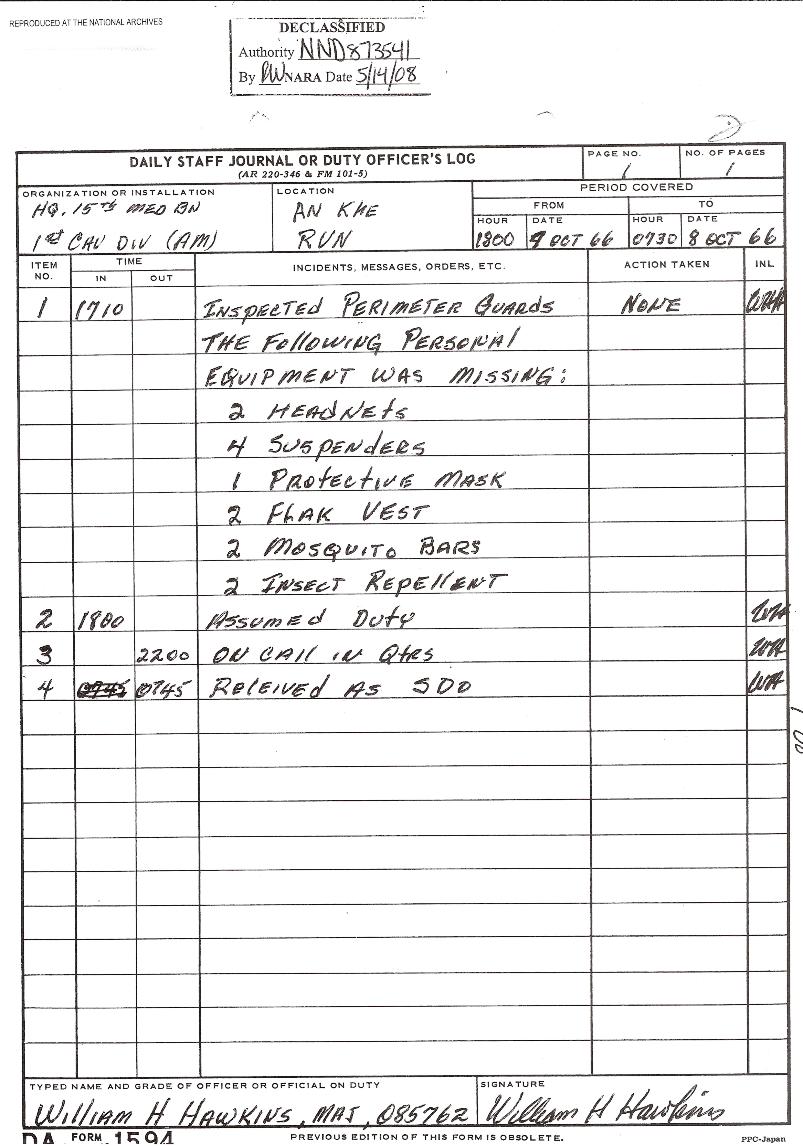 REPRODUCED AT THE NATIONAL ARCHIVES
DECLASSIFIED
Authority NND873541
By NARA Date 5/14/08
DAILY STAFF JOURNAL OR DUTY OFFICER'S LOG
(AR 220-346 & FM 101-5)
PAGE NO.
1
NO. OF PAGES
1
ORGANIZATION OR INSTALLATION
HQ. 15TH MED BN
1ST CAV DIV (AM)
LOCATION
AN KHE
RVN
PERIOD COVERED
FROM TO
HOUR DATE HOUR DATE
1800 OCT 66 0730 8 OCT 66
ITEM NO. TIME INCIDENTS, MESSAGES, ORDERS, ETC. ACTION TAKEN INL
IN OUT
1 1710 INSPECTED PERIMETER GUARDS NONE WHH
THE FOllOWING PERSONAl
EQUIPMENT WAS MISSING:
2 HEADNEtS
4 SUSPENDERS
1 PROtECtIVE MASK
2 FLAK VEST
2 MOSQUITO BARS
2 INSECT REPEllENT
2 1800 ASSUMEd DUtY
3 2200 ON CAll IN QtRS
4 0745 0745 RElEIVEd AS SDO
TYPED NAME AND GRADE OF OFFICER OR OFFICIAL ON DUTY
WIllIAM H HAWKINS, MAJ, 085762
SIGNATURE
William H Hawkins
DA FORM 1594
PREVIOUS EDITION OF THIS FORM IS OBSOLETE.
PPC-Japan